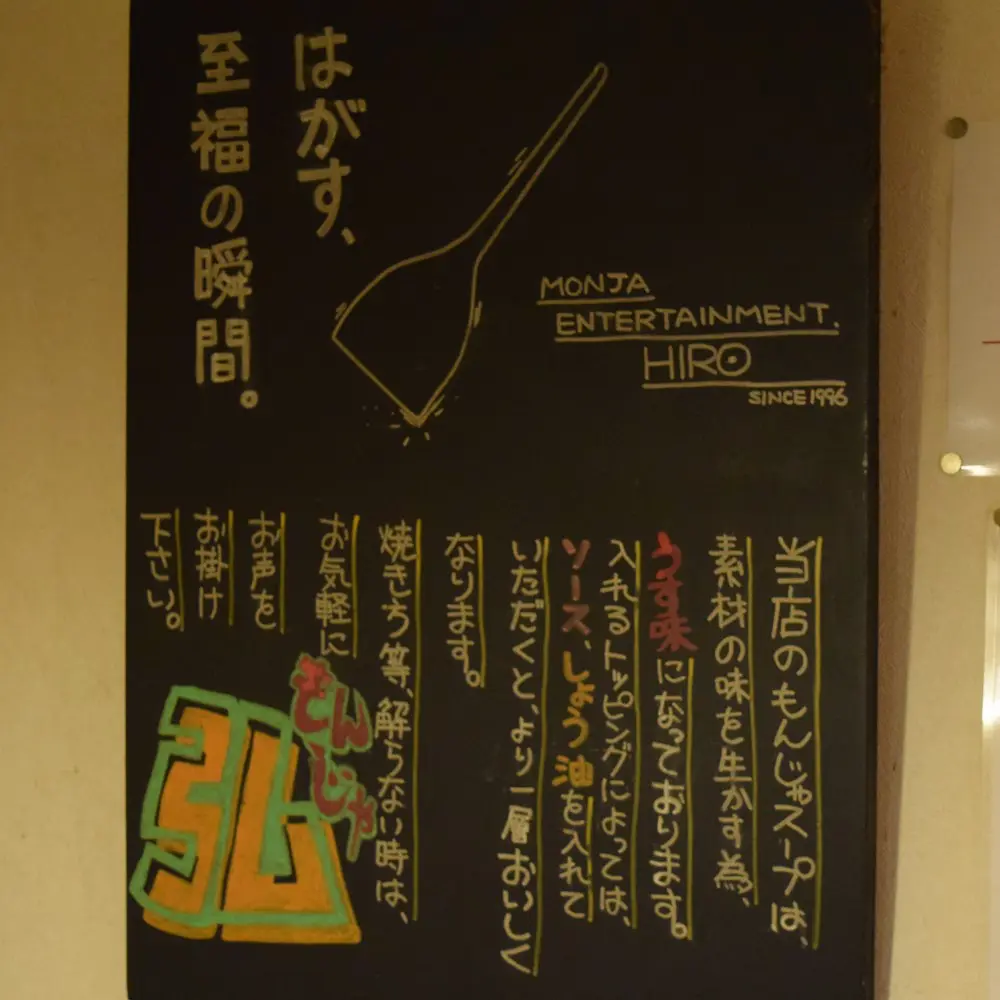 はがす、
至福の瞬間。
MONJA
ENTERTAINMENT.
HIRO
SINCE 1996
当店のもんじゃスープは、
素材の味を生かす為、
うす味になっております。
入れるトッピングによっては、
ソース、しょう油を入れて
いただくと、より一層おいしく
なります。
焼き方等、解らない時は、
お気軽に
お声を
お掛け
下さい。
もんじゃ
弘